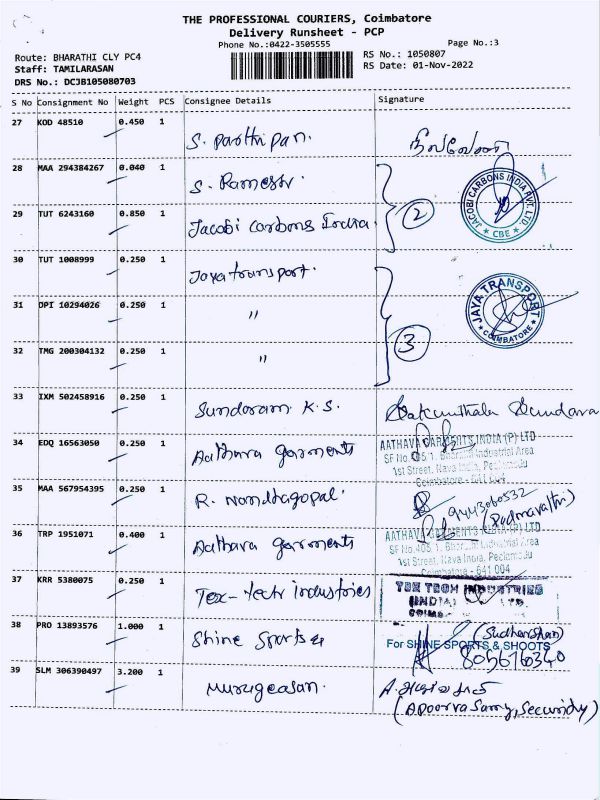 THE PROFESSIONAL COURIERS, Coimbatore
Delivery Runsheet - PCP
Phone No.:0422-3505555
Page No.:3
Route: BHARATHI CLY PC4
RS No.: 1050807
Staff: TAMILARASAN
RS Date: 01-Nov-2022
DRS No.: DCJB105080703
S No Consignment No Weight PCS Consignee Details Signature
27 KOD 48510 0.450 1 S. Parthipan.
28 MAA 294384267 0.040 1 S. Ramesh.
29 TUT 6243160 0.850 1 Jacobi Carbons India. 2
JACOBI CARBONS INDIA PVT. LTD. CBE
30 TUT 1008999 0.250 1 Jaya transport.
31 DPI 10294026 0.250 1 "
JAYA TRANSPORT COIMBATORE
32 TMG 200304132 0.250 1 " 3
33 IXM 502458916 0.250 1 Sundaram K.S.
34 EDQ 16563050 0.250 1 Aathava garments
AATHAVA GARMENTS INDIA (P) LTD
SF No. 405 1, Industrial Area
1st Street, Nava India, Peelamedu
Coimbatore - 641 004
35 MAA 567954395 0.250 1 R. Nandhagopal. 9443060532
(Padmavathi)
36 TRP 1951071 0.400 1 Aathava garments
AATHAVA GARMENTS INDIA (P) LTD
SF No. 405 1, Industrial Area
1st Street, Nava India, Peelamedu
Coimbatore - 641 004
37 KRR 5380075 0.250 1 Tex-tech industries
TEX TECH INDUSTRIES
(INDIA) LTD.
38 PRO 13893576 1.000 1 Shine Sports &
(Sudharshan)
For SHINE SPORTS & SHOOTS
39 SLM 306390497 3.200 1 Murugeasan.
(Apoorva Samy, Security)